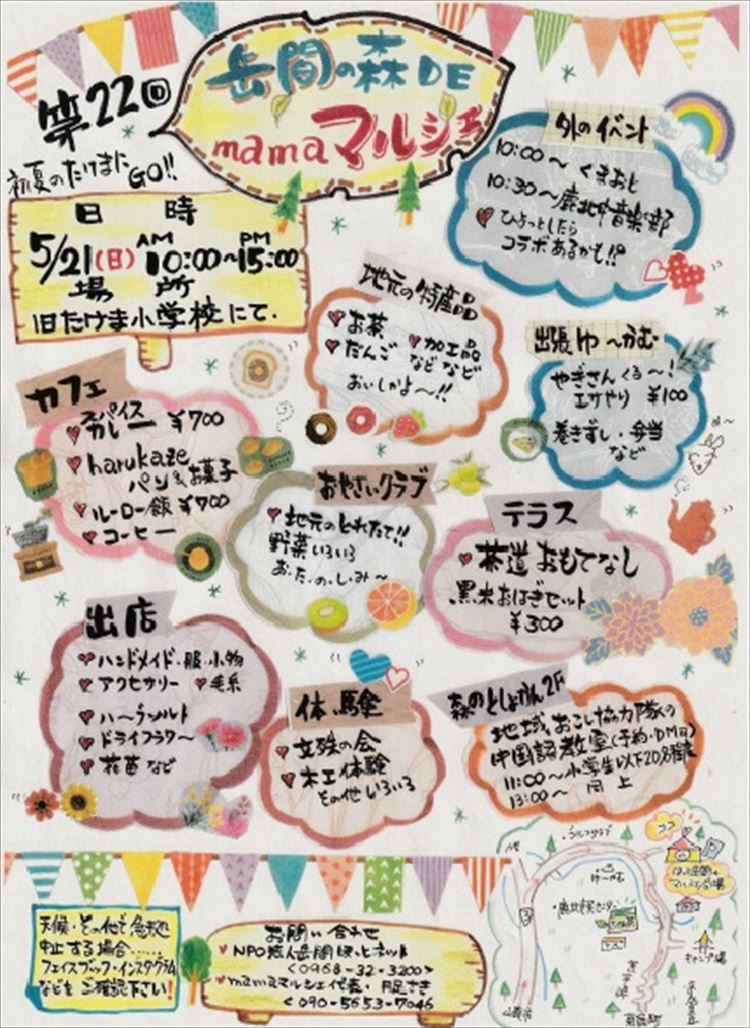 第22回
岳間の森DE
mamaマルシェ
初夏のたけまに
GO!!
日 時
5/21(日) AM 10:00~PM 15:00
場 所
旧たけま小学校にて.
外のイベント
10:00~ くまおと
10:30~鹿北中音楽部
ひょっとしたら
コラボあるかも!!
地元の特産品
お茶 加工品
だんご などなど
おいしかよ~!!
出張ゆ~かむ
やぎさんくる~!
エサやり ¥100
巻きずし・弁当
など
カフェ
スパイス
カレー ¥700
harukaze
パン&お菓子
ルーロー飯 ¥700
コーヒー
おやさいクラブ
地元のとれたて!!
野菜いろいろ
お・た・の・し・み~
テラス
茶道おもてなし
黒米おはぎセット
¥300
出店
ハンドメイド・服・小物
アクセサリー 毛糸
ハーブソルト
ドライフラワー
花苗など
体験
文殊の会
木工体験
その他いろいろ
森のとしょかん2F
地域おこし協力隊の
中国語教室(予約・DM可)
11:00~小学生以下20名程度
13:00~ 同上
ココ
ゆ~かむ
3
キャンプ場
山鹿市
天候・その他で急拠
中止する場合……
フェイスブック・インスタグラム
などをご確認下さい!
お問い合わせ
NPO法人岳間ほっとネット
<0968-32-3200>
mamaマルシェ代表・尾さき
<090-5653-7046